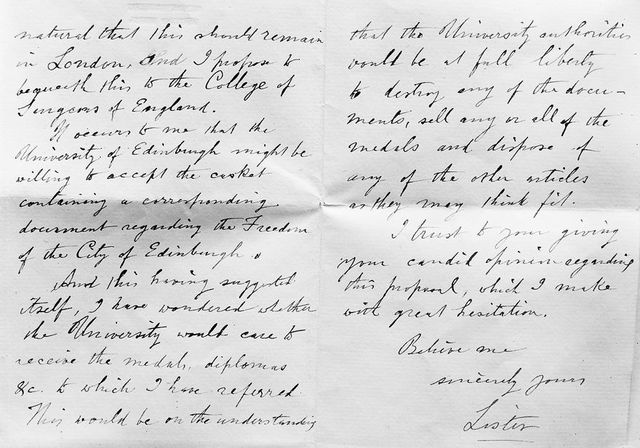 natural that this should remain
in London, and I propose to
bequeath this to the College of
Surgeons of England.
It occurs to me that the
University of Edinburgh might be
willing to accept the casket
containing a corresponding
document regarding the Freedom
of the City of Edinburgh.
And this having suggested
itself, I have wondered whether
the University would care to
receive the medals, diplomas
&c. to which I have referred.
This would be on the understanding
that the University authorities
would be at full liberty
to destroy any of the docu-
ments, sell any or all of the
medals and dispose of
any of the other articles
as they may think fit.
I trust to your giving
your candid opinion regarding
this proposal, which I make
with great hesitation.
Believe me
sincerely yours
Lister